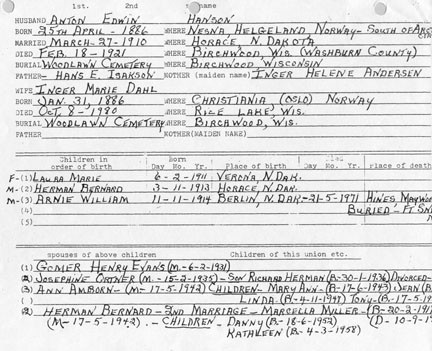 1st. 2nd name
HUSBAND ANTON EDWIN HANSON
BORN 25TH APRIL - 1886 WHERE NESNA, HELGELAND, NORWAY - SOUTH OF ARC
MARRIED MARCH-27-1910 WHERE HORACE N. DAKOTA
DIED FEB. 18-1921 WHERE BIRCHW'D, WIS. (WASHBURN COUNTY)
BURIAL WOODLAWN CEMETERY WHERE BIRCHWOOD, WISCONSIN
FATHER- HANS E. ISAKSON MOTHER (maiden name) INGER HELENE ANDERSEN
WIFE INGER MARIE DAHL
BORN JAN. 31, 1886 WHERE CHRISTIANIA (OSLO) NORWAY
DIED OCT, 8 - 1980 WHERE RICE LAKE, WIS.
BURIAL WOODLAWN CEMETERY WHERE BIRCHWOOD, WIS.
FATHER MOTHER(MAIDEN NAME)
Children in order of birth Born Day Mo. Yr. Place of birth Died Day Mo. Yr. Place of death
F-(1) LAURA MARIE 6-2-1911 VERONA, N. DAK.
M-(2) HERMAN BERNARD 3-11-1913 HORACE, N. DAK.
M-(3) ARNIE WILLIAM 11-11-1914 BERLIN, N. DAK-21-5-1971 HINES MAYWOO
(4) BURIED - FT SN
(5)
spouses of above children Children of this union etc.
(1) GOMER HENRY EVANS (M.-6-2-1931)
(2) JOSEPHINE ORTNER (M.-15-2-1935)-SON RICHARD HERMAN (B.-30-1-1936) DIVORCED-
(3) ANN AMBORN-(M-17-5-1942) CHILDREN-MARY ANN-(B.-17-6-1943) JEAN (B
LINDA. (B.-4-11-1947) TONY-(B.-17-5-19
(2) HERMAN BERNARD-2ND MARRIAGE-MARCELLA MILLER-(B.-20-2-191
(M-17-5-1942). - CHILDREN - DANNY (B.-18-6-1952) (D-10-9-1
KATHLEEN (B.-4-3-1958)